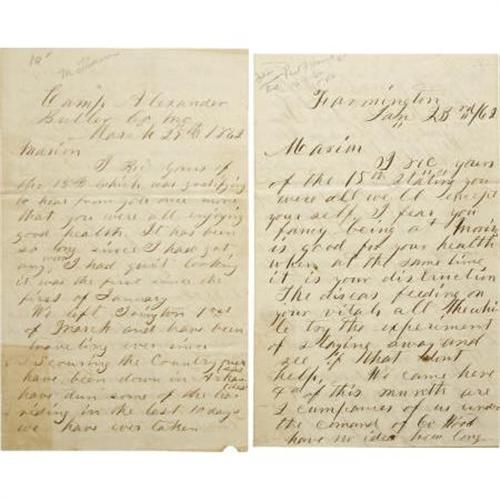 Camp Alexander
Butler Co Mo
March 25th 1862
Marion
I Rec yours of
the 15th which was gratifying
to hear from you once more
that you were all enjoying
good health. It has been
so long since I had got
any I had quit looking
it was the first since the
first of January
We left 1st
of March and have been
traveling ever since
Scouring the Country over
have been down in Arkan
sas
have dun some of the
riding in the last 10 days
we have ever taken
Farmington
Jan 23rd /62
Marion
I rec yours
of the 15th stating you
were all well except
your self, I fear you
fancy being at
is good for your health
when at the same time
it is your distruction
The diseas feeding on
your vitals all the whi
le try the experiment
of staying away and
see if that wont
help, We came here
of this month are
companies of us under
the comand of Co Wood
have no idea how long